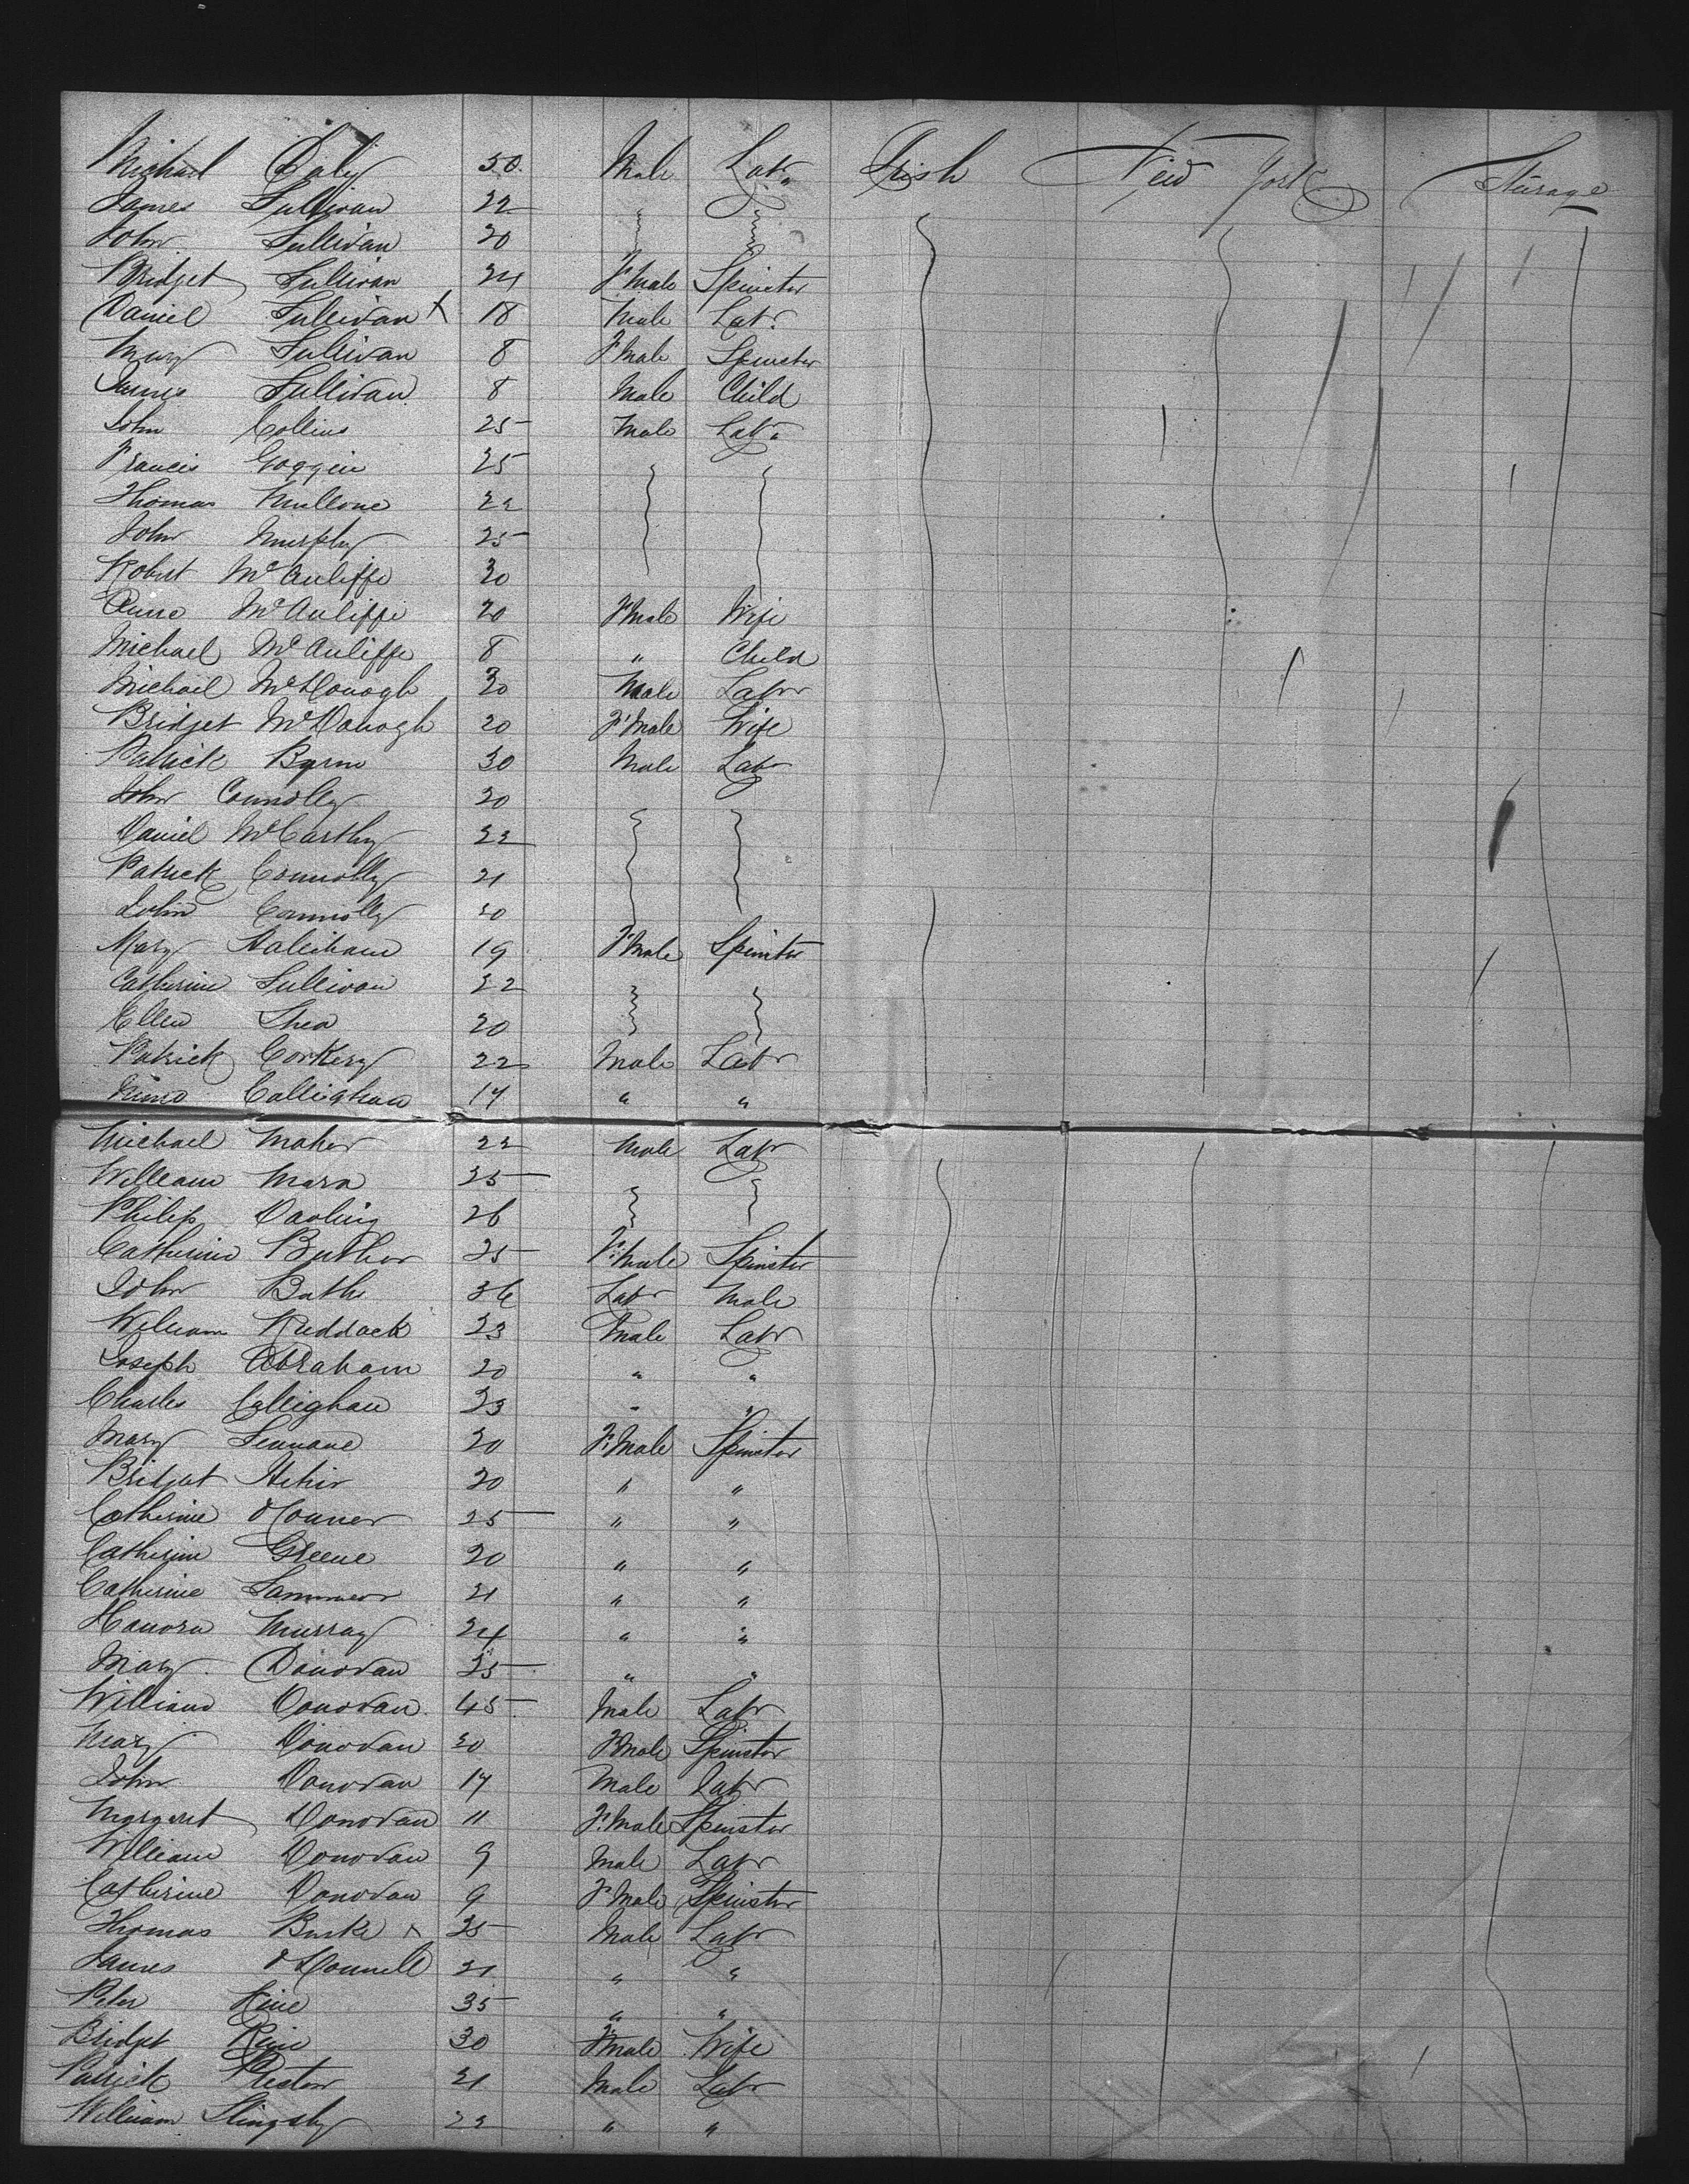 Michael Daly 50 Male Labr Irish New York Sturage
James Sullivan 22
John Sullivan 20
Bridget Sullivan 24 F.Male Spinster
Daniel Sullivan X 18 Male Labr
Mary Sullivan 8 F.Male Spinster
James Sullivan 8 Male Child
John Collins 25 Male Labr
Francis Goggin 25
Thomas Mullone 22
John Murphy 25
Robert McAuliffe 30
Anne McAuliffe 20 F.Male Wife
Michael McAuliffe 8 " Child
Michael McDonogh 30 Male Labr
Bridget McDonogh 20 F.Male Wife
Patrick Byrne 30 Male Labr
John Connolly 20
Daniel McCarthy 22
Patrick Connolly 21
John Connolly 20
Mary 19 F.Male Spinster
Catherine Sullivan 22
Ellen Shea 20
Patrick Corkery 22 Male Labr
Callighan 17 " "
Michael Maher 22 Male Labr
William Mara 25
Philip Darling 26
Catherine 25 F.Male Spinster
John 36 Labr Male
William Ruddock 23 Male Labr
Joseph Abraham 20 " "
Charles Callighan 23 " "
Mary Lennane 20 F.Male Spinster
Bridget Hehir 20 " "
Catherine O'Conner 25 " "
Catherine Greene 20 " "
Catherine 21 " "
Hanora Murray 24 " "
Mary Donovan 25 " "
William Donovan 45 Male Labr
Mary Donovan 20 F.Male Spinster
John Donovan 17 Male Labr
Margaret Donovan 11 F.Male Spinster
William Donovan 9 Male Labr
Catherine Donovan 9 F.Male Spinster
Thomas Burke x 25 Male Labr
James O'Donnell 21 " "
Peter 35 " "
Bridget 30 F.Male Wife
Patrick Preston 21 Male Labr
William Slingsby 22 " "